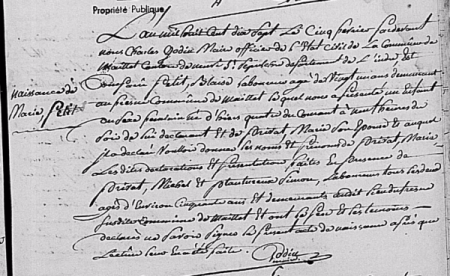 Propriété Publique
L'an mil huit cent dix sept Le Cinq fevrier pardevant
nous Charles Godin Maire officier de l'Etat Civil de La Commune de
Maillet Canton de departement de L'indre Est
Comparu Petit, Blaise laboureur agé de Vingt un ans demeurant
Naissance de
Marie Petit
Commune de Maillet Lequel nous a presenté un Enfant
du Sexe feminin né d'hier quatre du Courant à neuf heures du
Soir de lui declarant et de Privat, Marie Son Epouse et auquel
il a declaré Vouloir donner les noms et prenoms de Marie
Les dites declarations et presentation faites En presence de
Privat, Michel et Simon, Laboureurs tous les deux
agés d'Environ Cinquante ans et demeurants audit
Susdite Commune de Maillet et ont le pere et les temoins
declaré ne Savoir Signer le present acte de naissance après que
Lecture leur En a été faite.
Godin